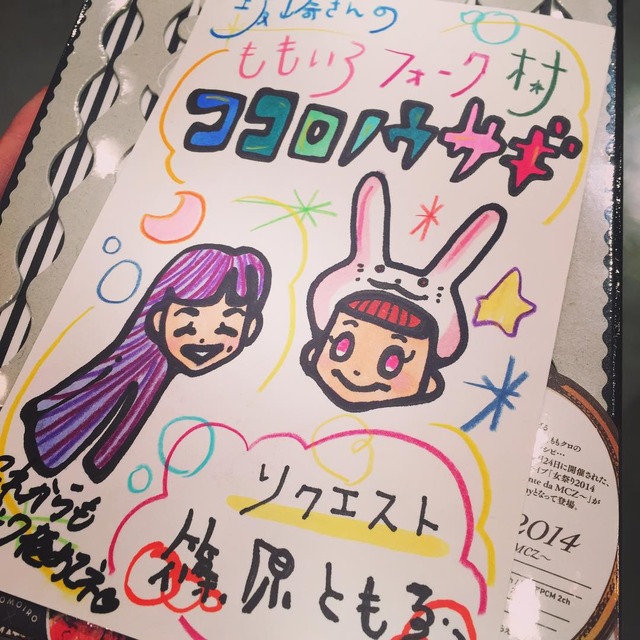 坂崎さんの
ももいろフォーク村
ココロノウサギ
リクエスト
篠原ともゑ
ももクロの
24日に開催された、
イブ「女祭り2014
nte da MCZ〜」が
となって登場。
2014
MCZ〜
PCM 2ch